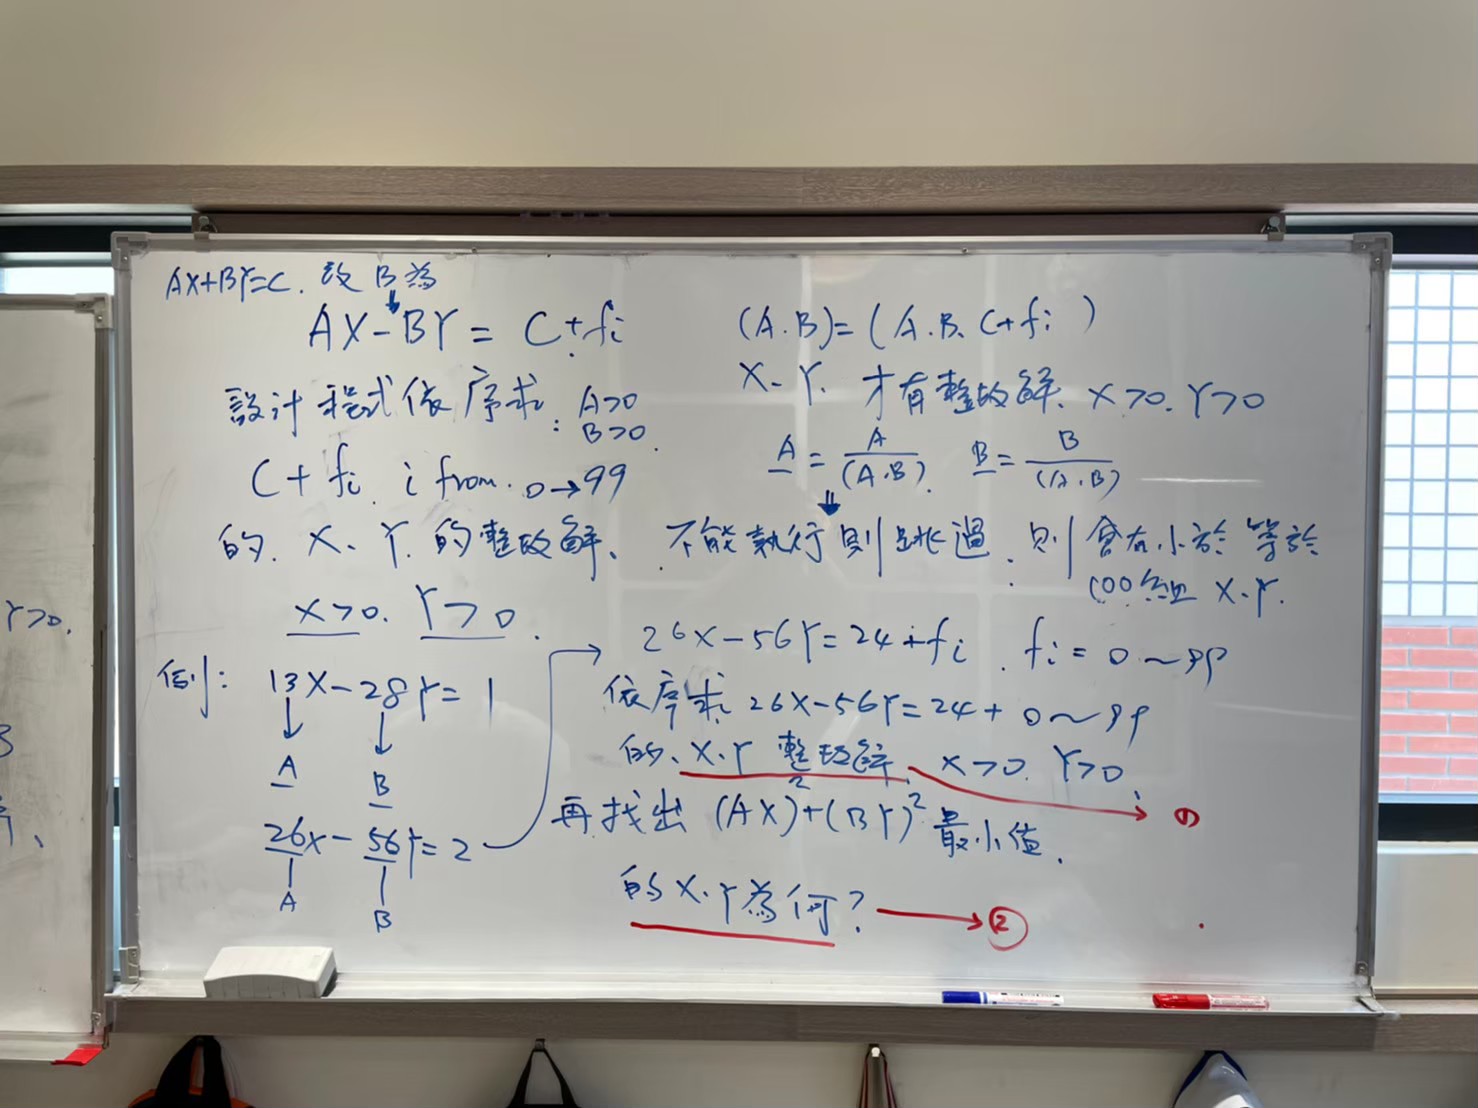 AX+BY=C. 改 B 為
AX-BY = C+fi
設計程式依序求: A>0
B>0.
C+fi, i from. 0→99
的. X、Y. 的整數解、
X>0. Y>0.
例: 13X-28Y=1
A B
26X-56Y=2
A B
(A.B)=(A.B. C+fi)
X、Y. 才有整數解、X>0. Y>0
A = A/(A.B). B = B/(A.B)
不能執行則跳過. 則會有小於等於
100組 X.Y.
26X-56Y=24+fi. fi=0~99
依序求 26X-56Y=24+0~99
的、X.Y 整數解、X>0. Y>0. ①
再找出 (AX)²+(BY)² 最小值.
的 X.Y 為何? ②
Y>0.
3